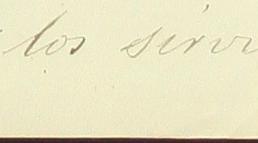 los servi